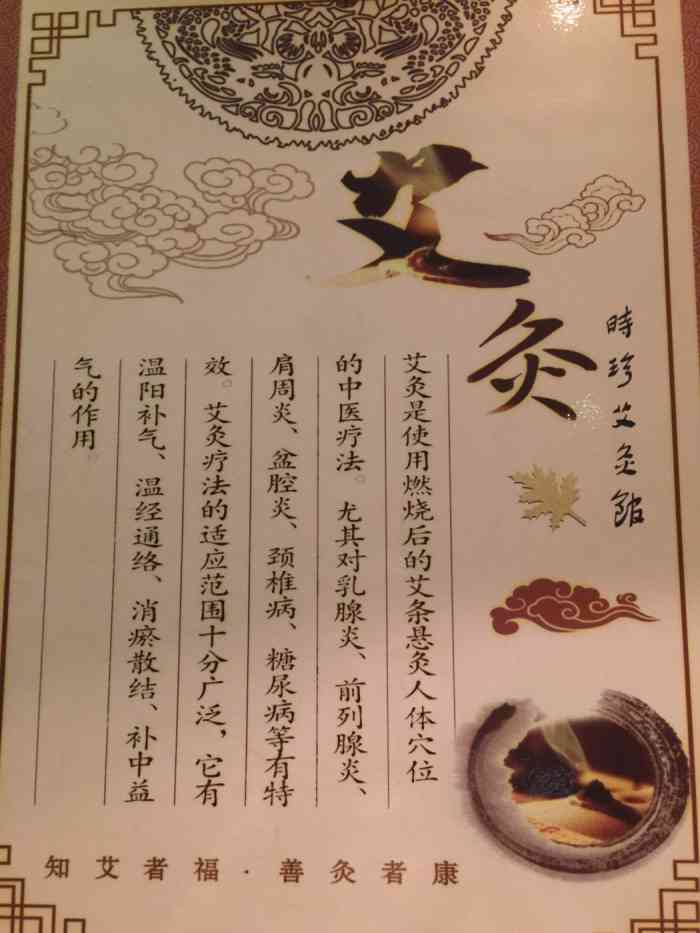 艾灸
時珍艾灸館
艾灸是使用燃烧后的艾条悬灸人体穴位
的中医疗法。尤其对乳腺炎、前列腺炎、
肩周炎、盆腔炎、颈椎病、糖尿病等有特
效。艾灸疗法的适应范围十分广泛，它有
温阳补气、温经通络、消瘀散结、补中益
气的作用
知艾者福·善灸者康